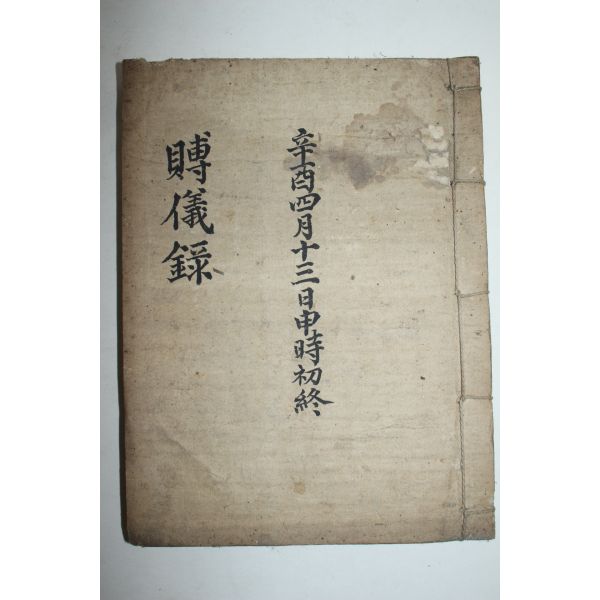 辛酉四月十三日申時初終
賻儀錄